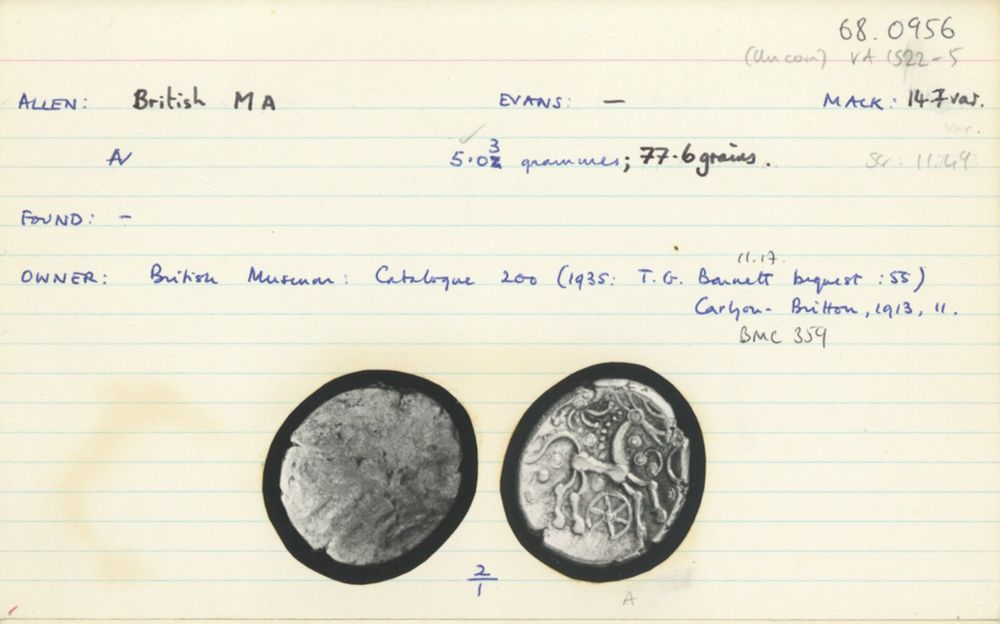 68.0956
(Uncoin) VA 1522-5
ALLEN: British MA EVANS: — MACK: 147 var.
var.
N 5.03 grammes; 77.6 grains. Scr: 11.49
FOUND: -
11.17.
OWNER: British Museum: Catalogue 200 (1935: T.G. Barnett bequest :55)
Carlyon-Britton, 1913, 11.
BMC 359
2
1
A